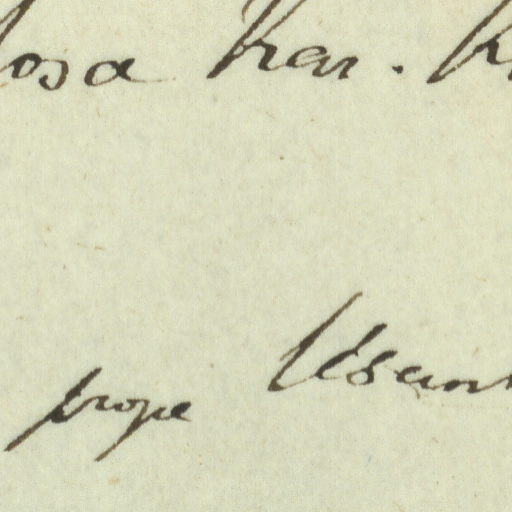 losa Kar. K
prope Usam